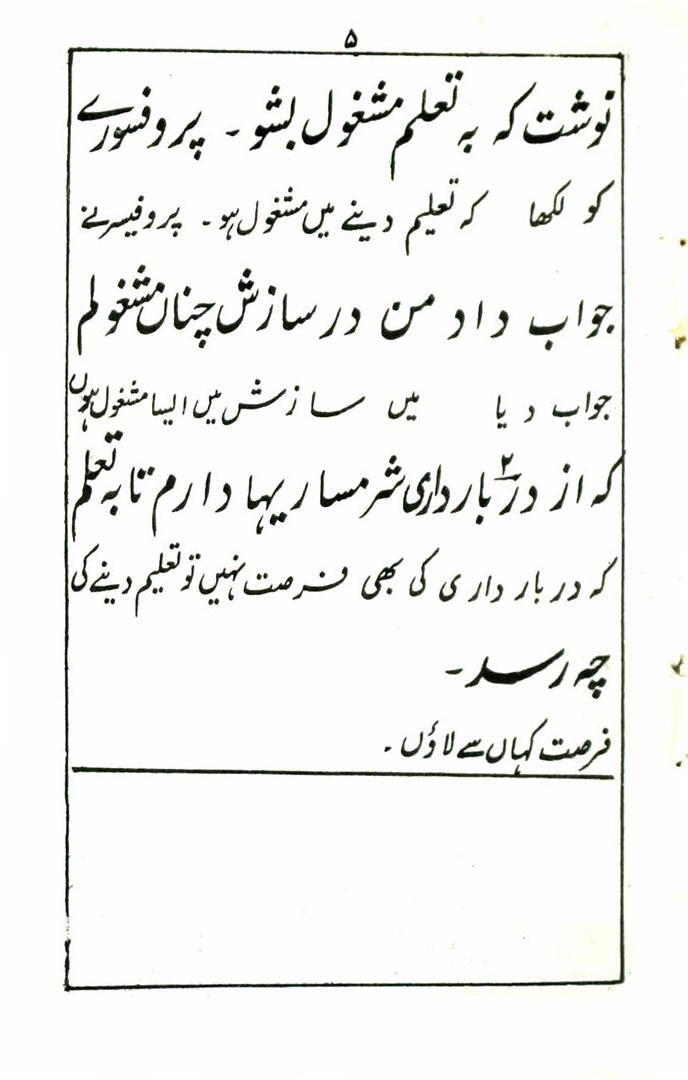 ۵
نوشت کہ بہ تعلم مشغول بشو ۔ پروفسورے
کو لکھا کہ تعلیم دینے میں مشغول ہو ۔ پروفیسر نے
جواب داد من در سازش چناں مشغولم
جواب دیا میں سازش میں ایسا مشغول ہوں
کہ از دربارداری ۲ شرمساریہا دارم تا بہ تعلم
کہ دربار داری کی بھی فرصت نہیں تو تعلیم دینے کی
چہ رسد ۔
فرصت کہاں سے لاؤں ۔